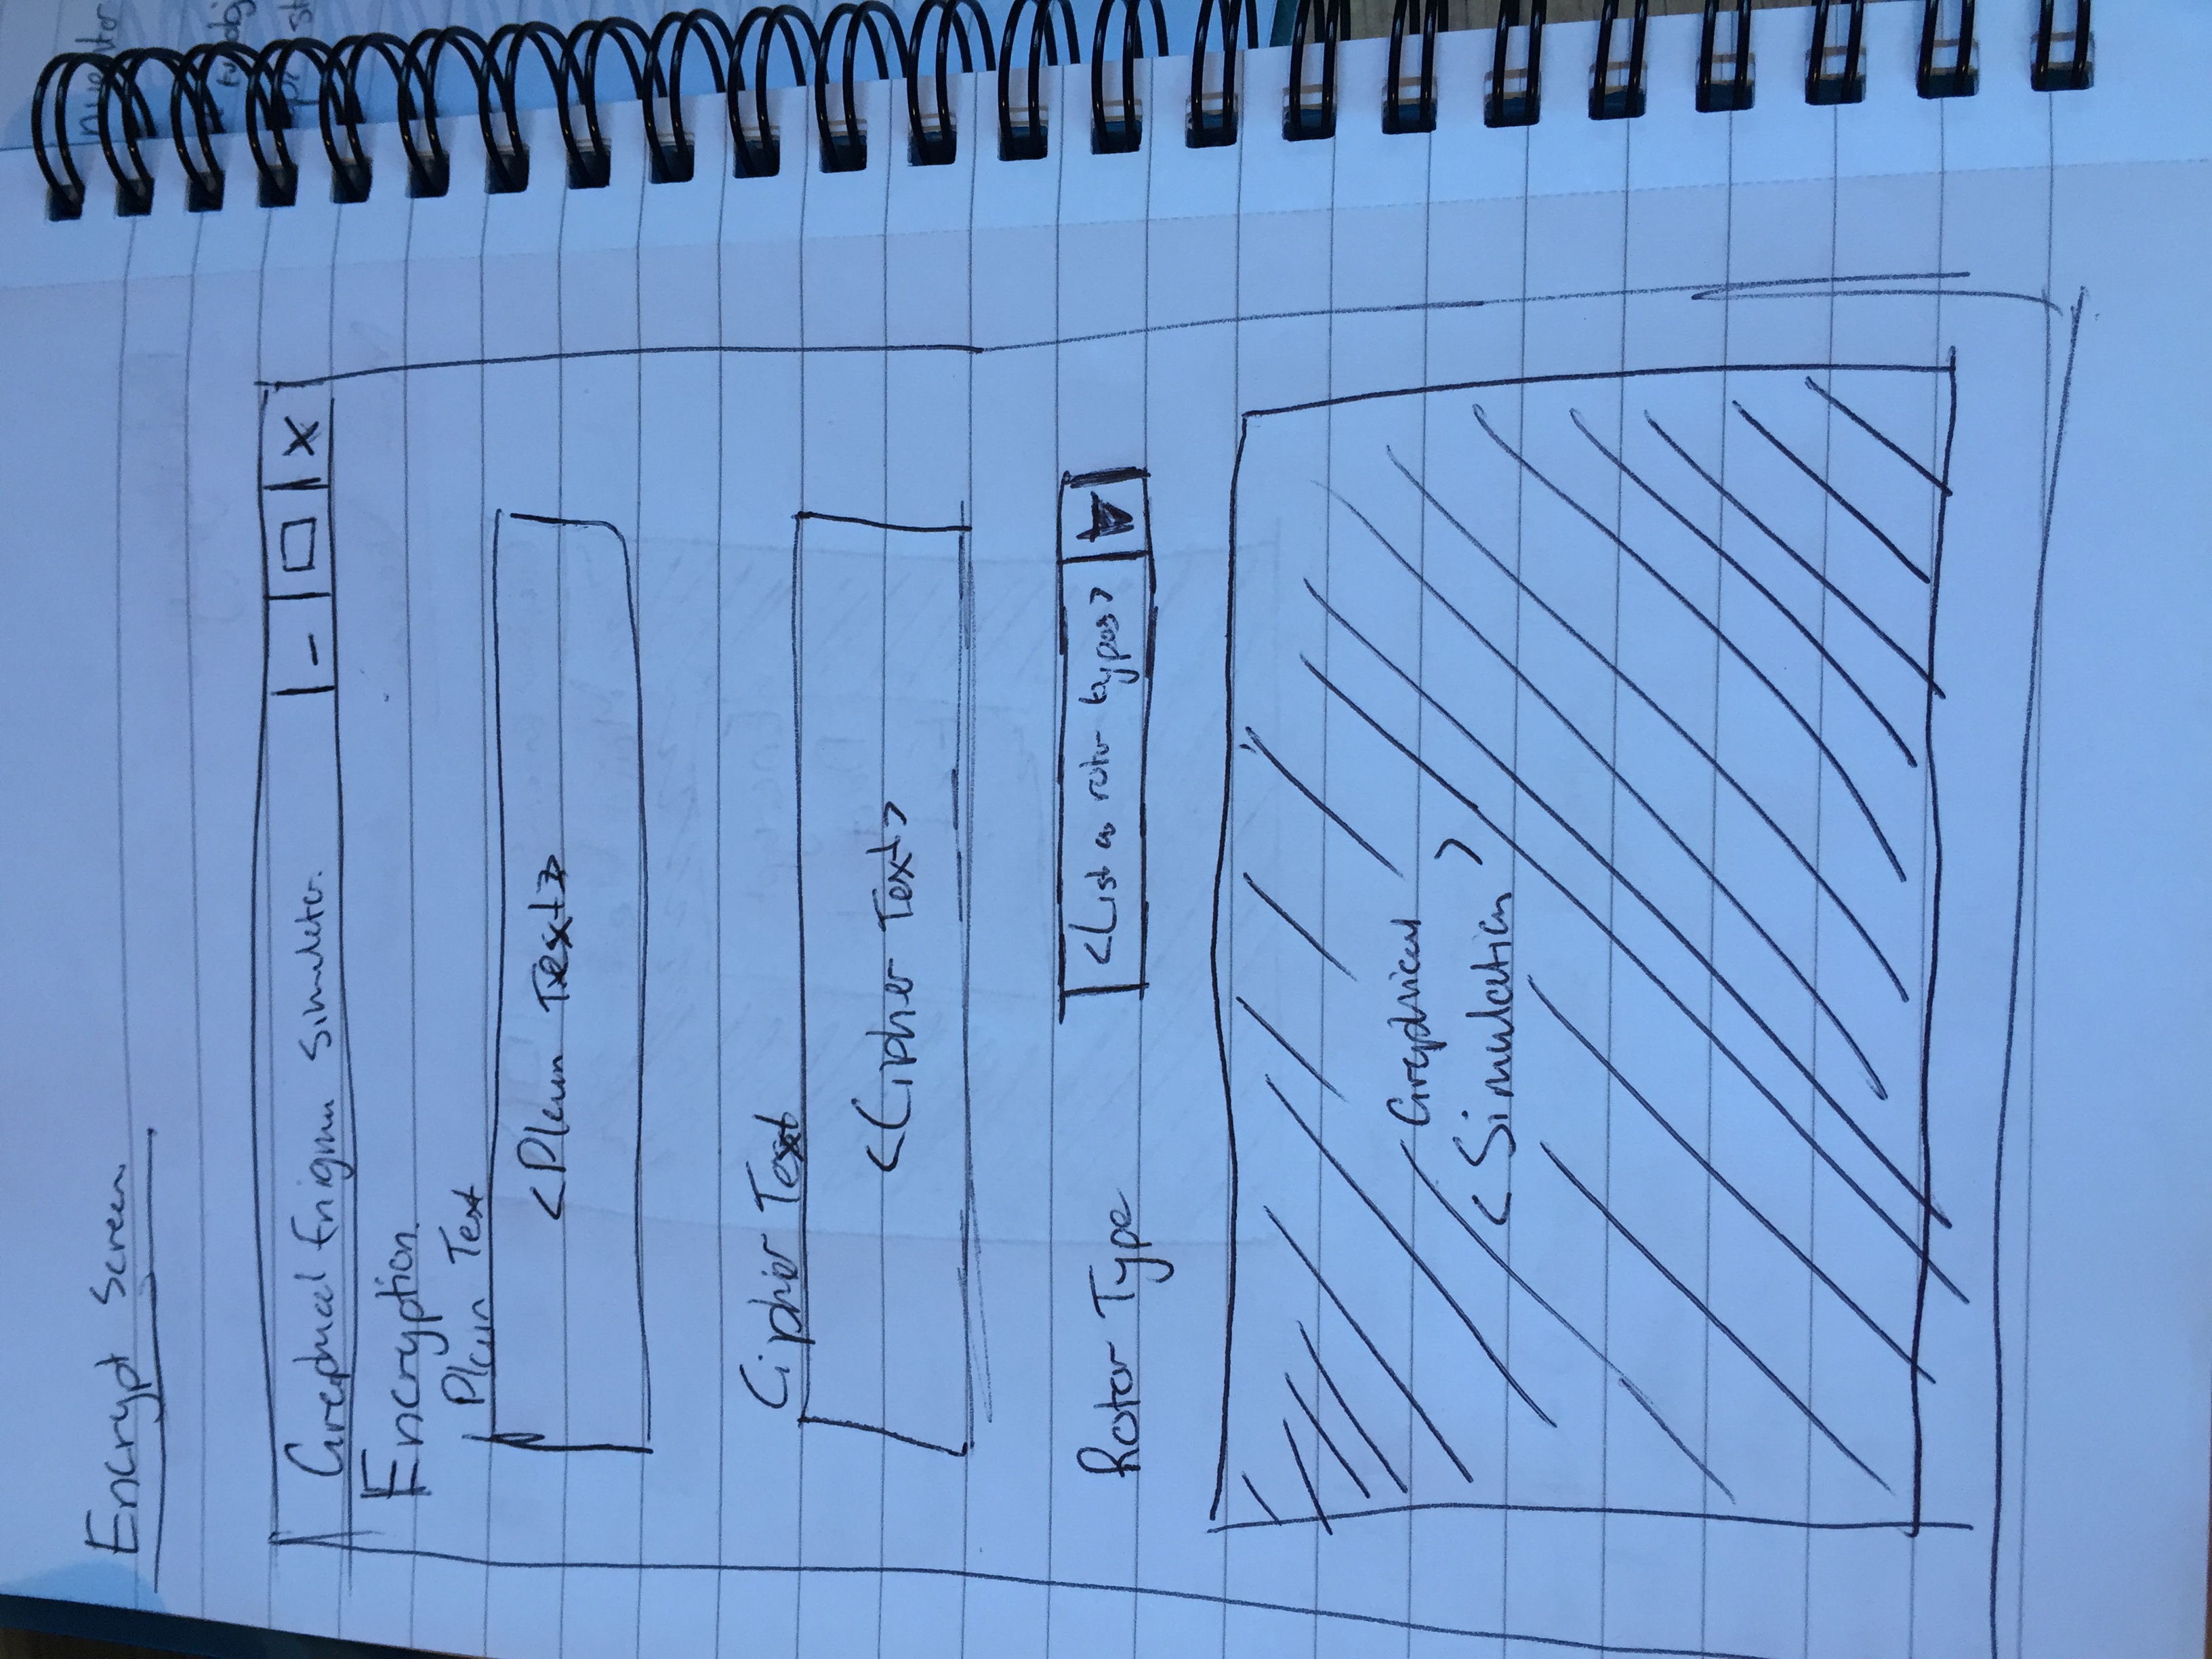 Encrypt Screen
Graphical Enigma Simulator.
Encryption.
Plain Text
<Plain Text>
Cipher Text
<Cipher Text>
Rotor Type
<List o rotor types>
Graphical
< Simulation >